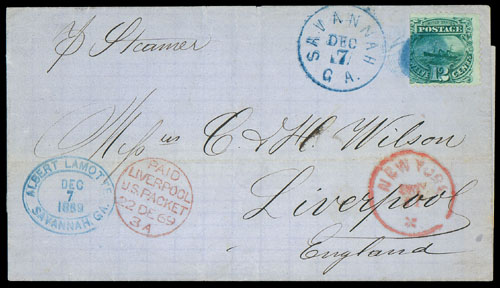 p Steamer
SAVANNAH
DEC
17
GA.
POSTAGE
12
CENTS
Mess rs C & H. Wilson
Liverpool
England
ALBERT LAMOTTE
DEC
7
1869
SAVANNAH, GA.
PAID
LIVERPOOL
U.S. PACKET
22 DE 69
3A
NEW YORK